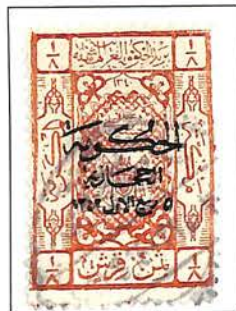 ١/٨ بريد الحكومة العربية الهاشمية ١/٨
١٣٤٠
الحكومة
الحجازية
٥ ربيع الاول ١٣٤٣
١/٨ ثمن قرش ١/٨